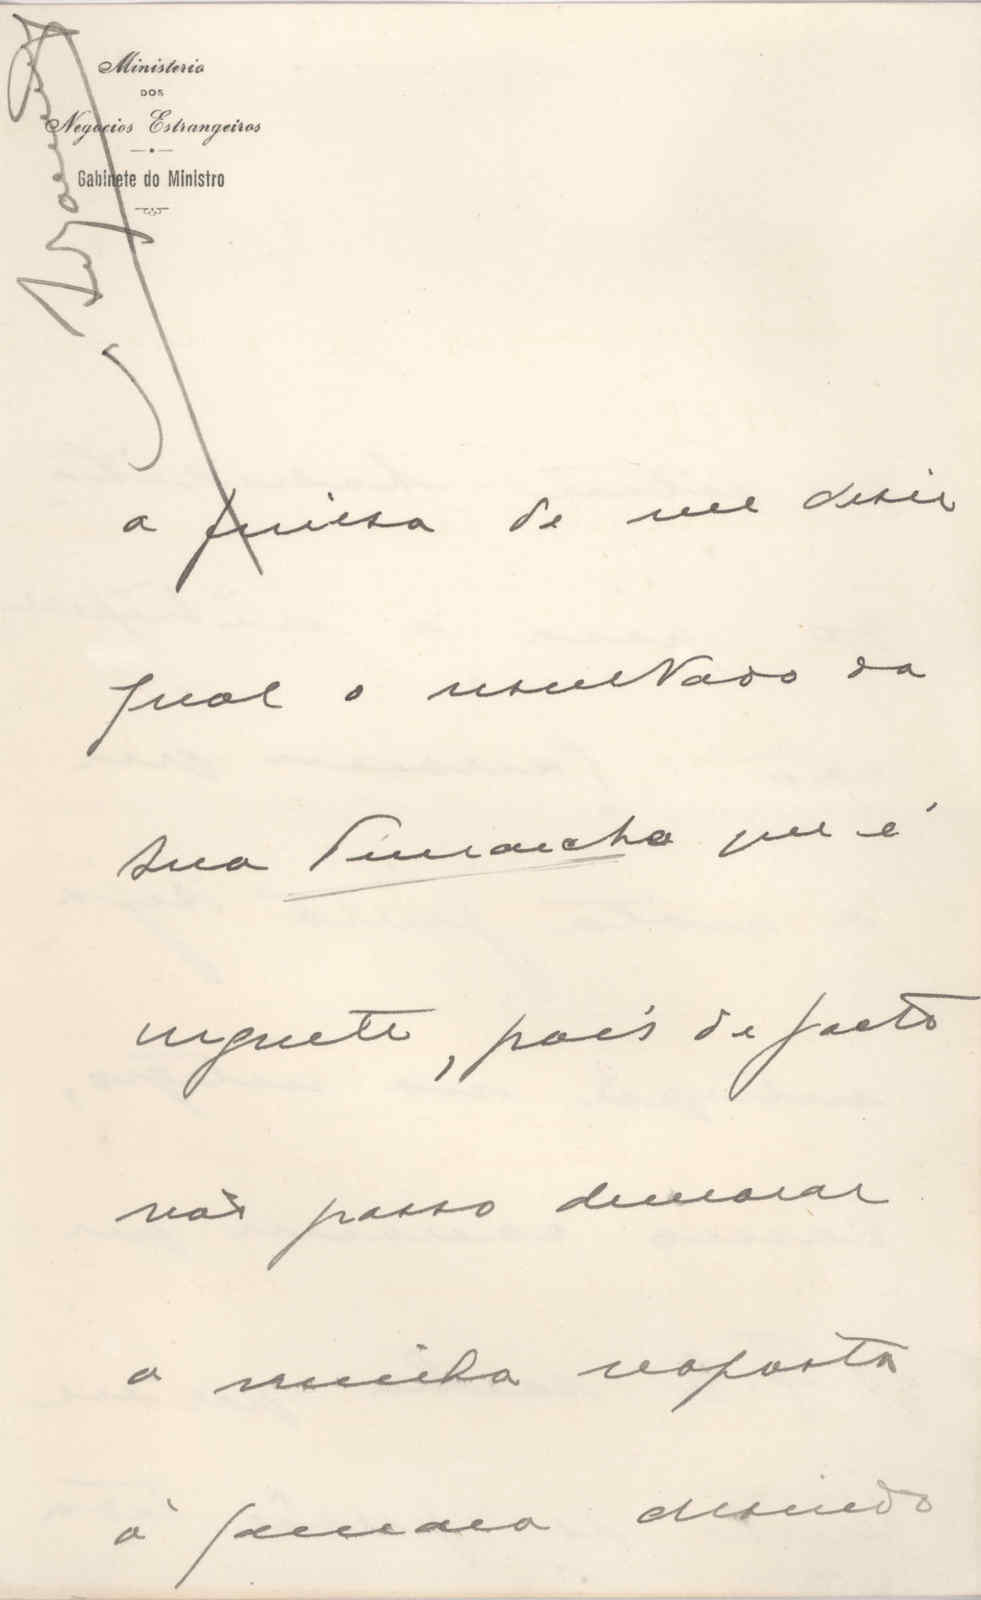 Ministerio
DOS
Negocios Estrangeiros
Gabinete do Ministro
a fineza de me dizer
qual o resultado da
sua démarche que é
urgente, pois de facto
não posso demorar
a minha resposta
à Camara devendo